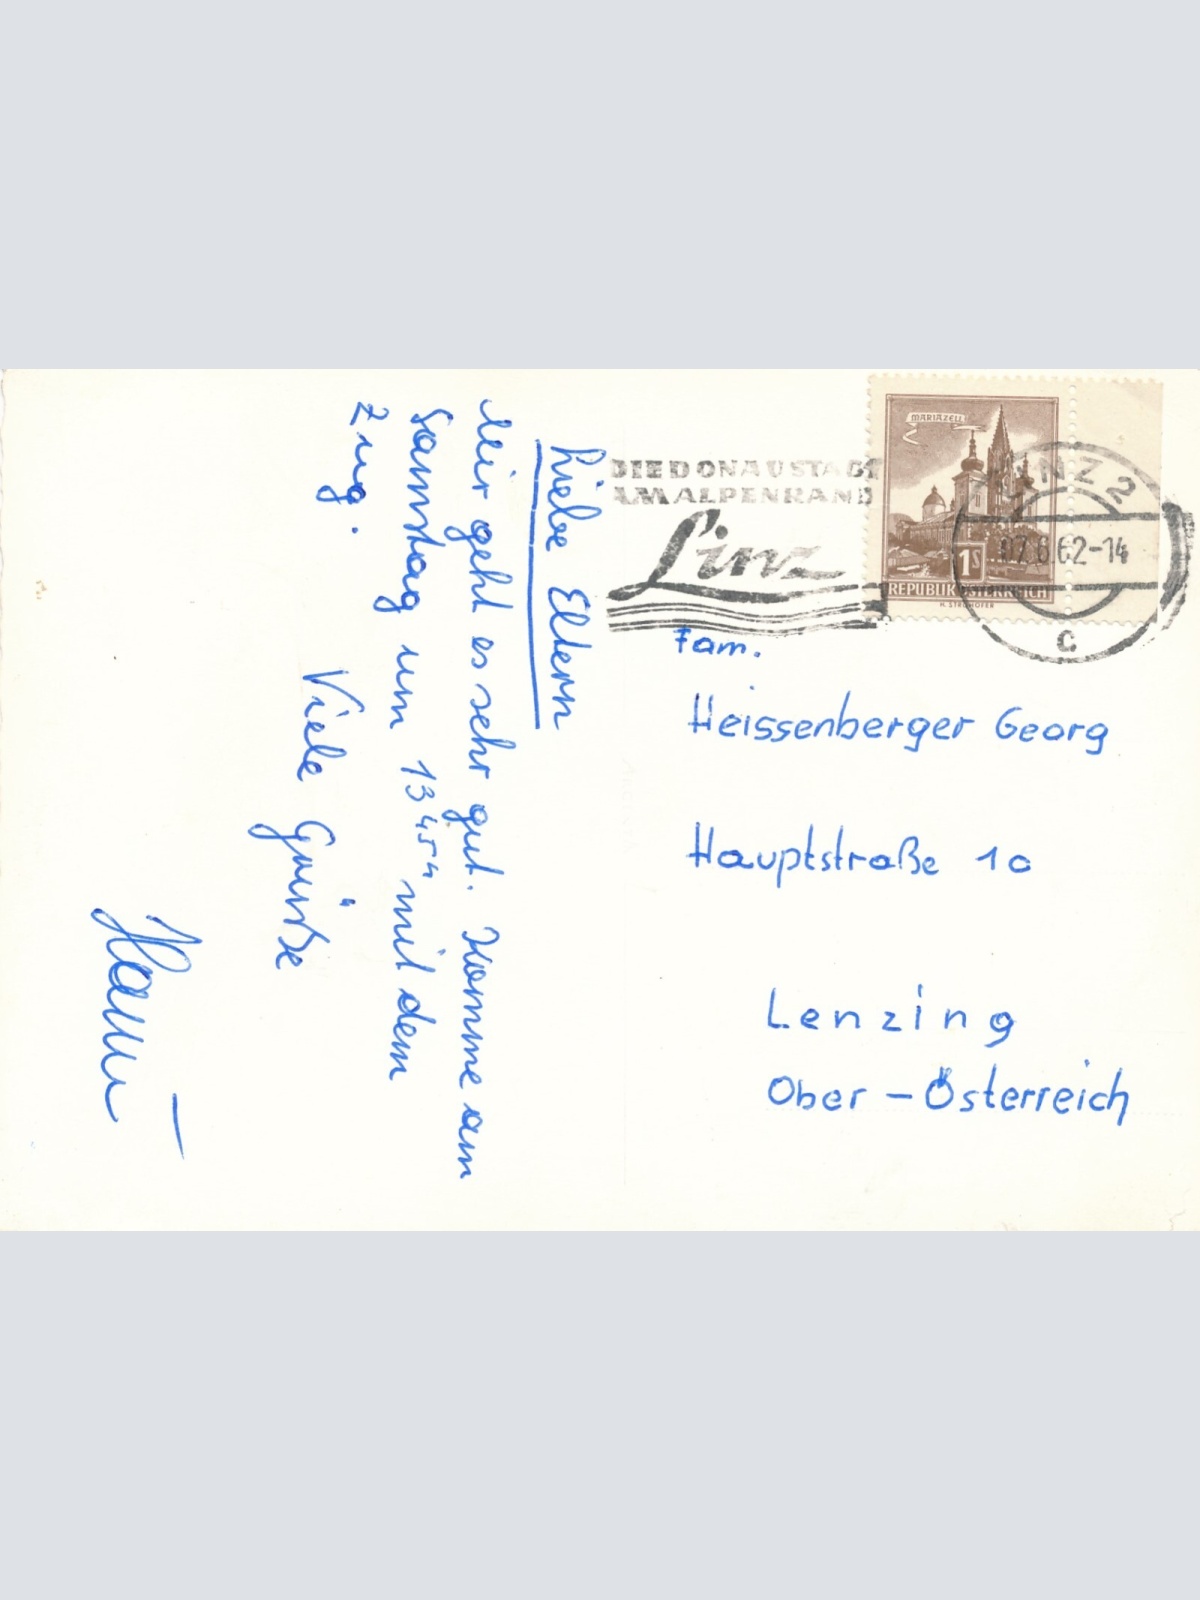 Liebe Eltern
Mir geht es sehr gut. Komme am
Samstag um 13 45 h mit dem
Zug.
Viele Grüße
DIE DONAUSTADT
AM ALPENRAND
Linz
MARIAZELL
1S
REPUBLIK ÖSTERREICH
H. STROHOFER
LINZ 2
07.6.62-14
C
Fam.
Heissenberger Georg
Hauptstraße 10
Lenzing
Ober-Österreich